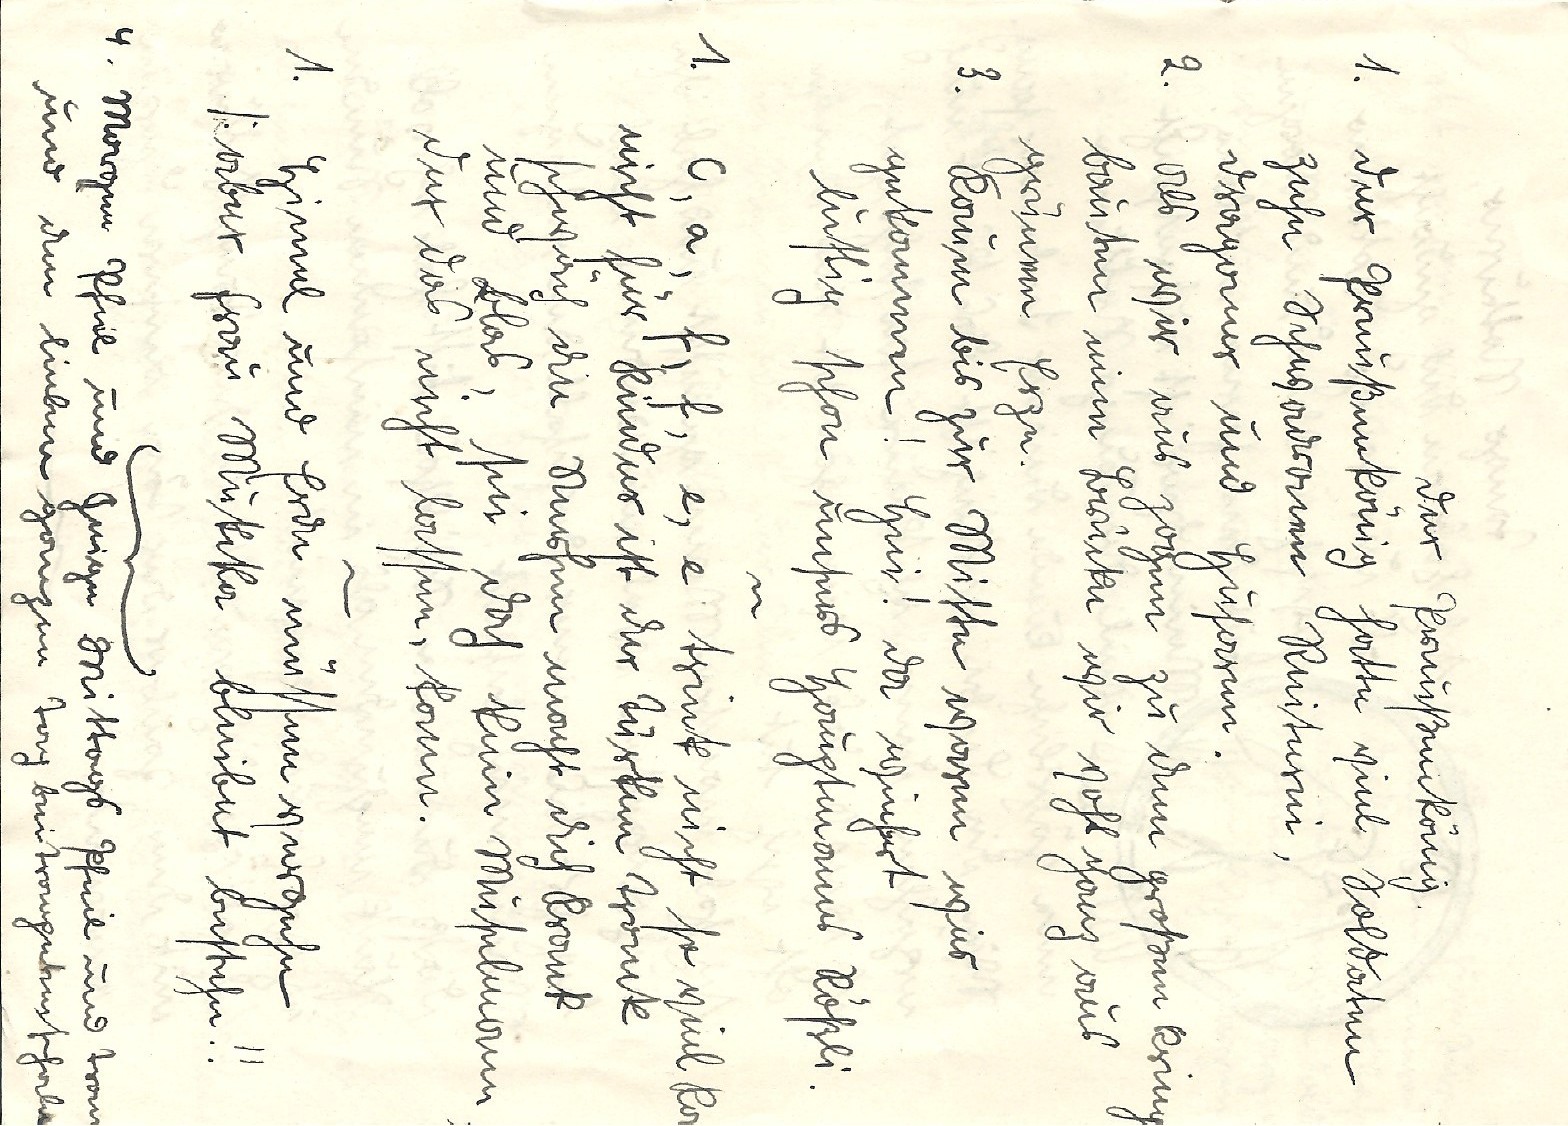 der Preußenkönig.
1. der Preußenkönig hatte viel Soldaten
zehn Schwadronen Reiterei,
dragoner und Husaren.
2. als wir aus zogen zu dem großen Krieg
bauten eine Brücke wir vohl ganz aus
grünem Erze.
3. Kaum bis zur Mitte waren wir
gekommen! Hei! da wiehert
luftig schon unsers Hauptmanns Rößli.
~
1. C, a, f, f, e, e trink nicht so viel Ka
nicht für Kinder ist der Türken trank
schwäch die Nerfen macht dich krank
und blas, sei doch kein Muselmann,
der das nicht lassen, kann.
~
1. Himel und Erde müssen vergehn
/: aber Frau Mukika bleibet bestehn!!
4. Morgen Pfeil und Geige Mittags Pfeil und tran
und den lieben ganzen Tag bei